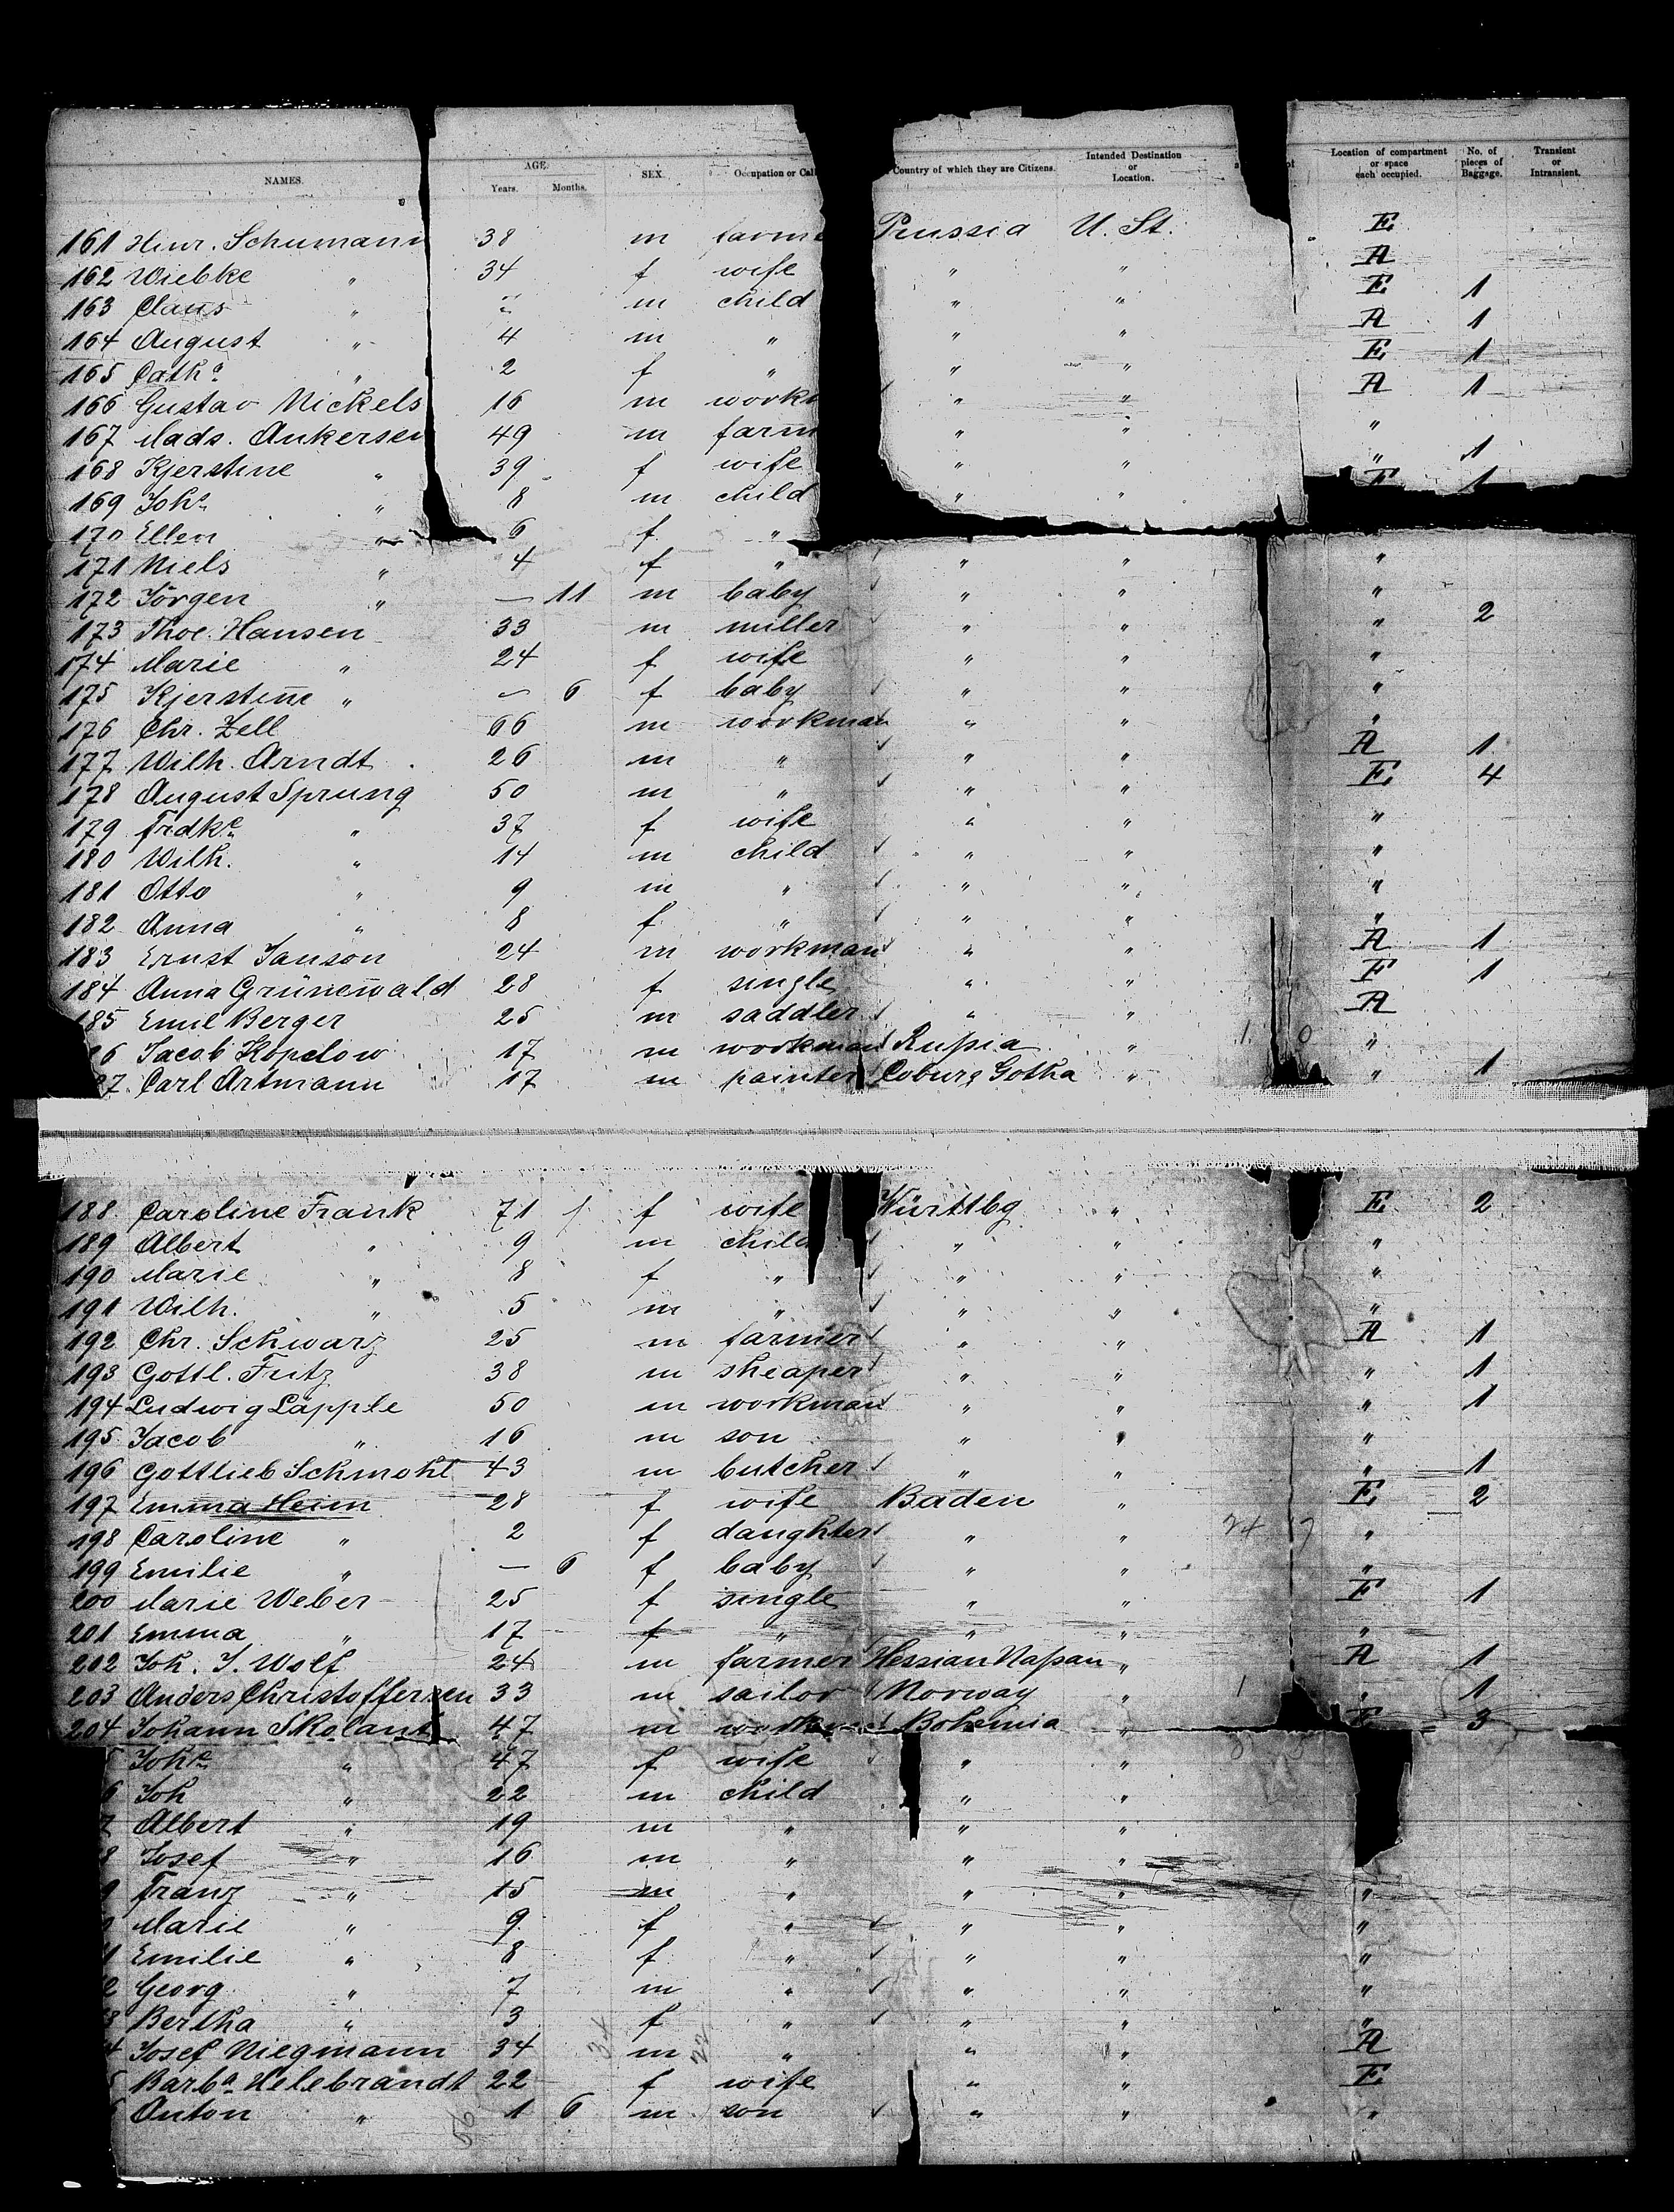 NAMES. AGE. Years. Months. SEX. Occupation or Cal Country of which they are Citizens. Intended Destination or Location. Location of compartment or space each occupied. No. of pieces of Baggage. Transient or Intransient.
161 Hinr. Schumann 38 m farme Prussia U. St. E
162 Wiebke " 34 f wife " " A
163 Claus " m child " " E 1
164 August " 4 m " " " A 1
165 Cath.a " 2 f " " " E 1
166 Gustav Nickels 16 m workm " " A 1
167 Mads. Ankersen 49 m farm " " "
168 Kjerstine " 39 f wife " " " 1
169 Joh.s " 8 m child " " E 1
170 Ellen " 6 f "
171 Niels " 4 f " " " "
172 Jörgen " — 11 m baby " " "
173 Thoe. Hansen 33 m miller " " " 2
174 Marie " 24 f wife " " "
175 Kjerstine " — 6 f baby " " "
176 Chr. Zell 66 m workman " " "
177 Wilh. Arndt 26 m " " " A 1
178 August Sprung 50 m " " " E 4
179 Frdke " 37 f wife " " "
180 Wilh. " 14 m child " " "
181 Otto " 9 m " " " "
182 Anna " 8 f " " " "
183 Ernst Janson 24 m workman " " A 1
184 Anna Grünewald 28 f single " " E 1
185 Emil Berger 25 m saddler " " A
86 Jacob Kopelow 17 m workman Rußia " 1 0 "
87. Carl Artmann 17 m painter Coburg Gotha " " 1
188 Caroline Frank 71 f wife Württbg " E 2
189 Albert " 9 m child " " "
190 Marie " 8 f " " " "
191 Wilh. " 5 m " " " "
192 Chr. Schwarz 25 m farmer " " A 1
193 Gottl. Fritz 38 m sheaper " " " 1
194 Ludwig Läpple 50 m workman " " " 1
195 Jacob " 16 m son " " "
196 Gottlieb Schmohl 43 m butcher " " " 1
197 Emma Heim 28 f wife Baden " E 2
198 Caroline " 2 f daughter " " 24 "
199 Emilie " — 6 f baby " " "
200 Marie Weber 25 f single " " E 1
201 Emma " 17 f " " " "
202 Joh. J. Wolf 24 m farmer Hessian Naßau " A 1
203 Anders Christoffersen 33 m sailor Norway " 1 " 1
204 Johann Skolant 47 m workman Bohemia " E 3
5 Joh.e " 47 f wife " "
6 Joh " 22 m child " "
7 Albert " 19 m " " "
8 Josef " 16 m " " "
9 Franz " 15 m " " " "
Marie " 9 f " " " "
1 Emilie " 8 f " " " "
2 Georg " 7 m " " " "
3 Bertha " 3 f " " " "
4 Josef Niegmann 34 m " " " A
5 Barb.a Helebrandt 22 f wife " " E
6 Anton " 1 6 m son " " "
34
22
56